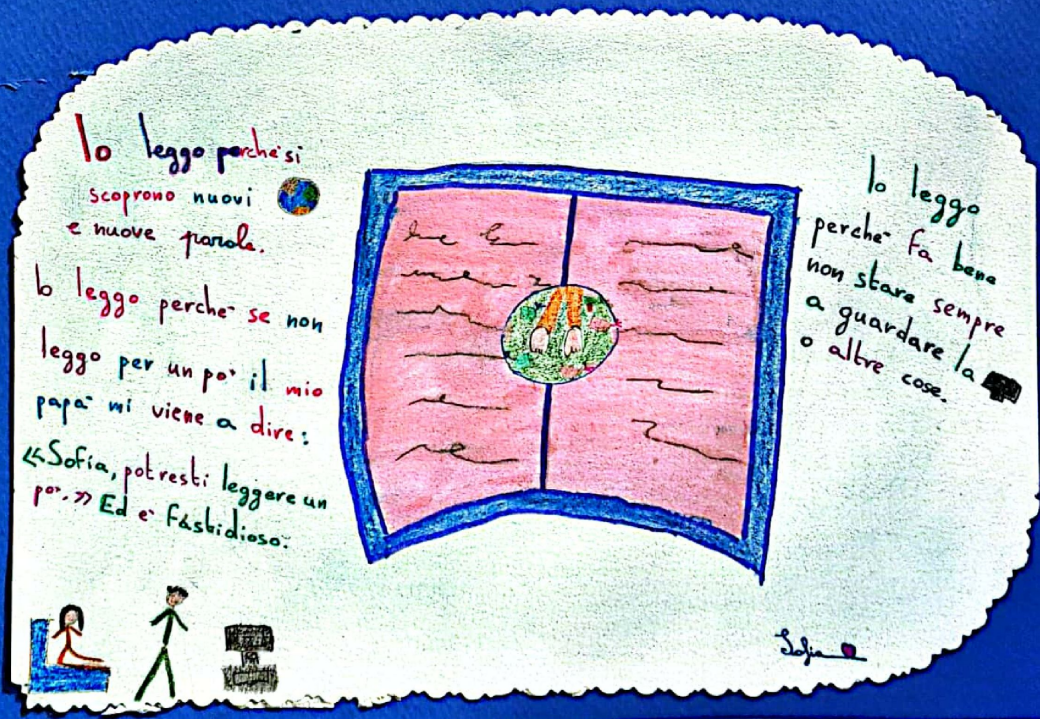 Io leggo perchè si
scoprono nuovi
e nuove parole.
Io leggo perchè se non
leggo per un po' il mio
papà mi viene a dire:
«Sofia, potresti leggere un
po'.» Ed è fastidioso.
Io leggo
perchè fa bene
non stare sempre
a guardare la
o altre cose.
Sofia